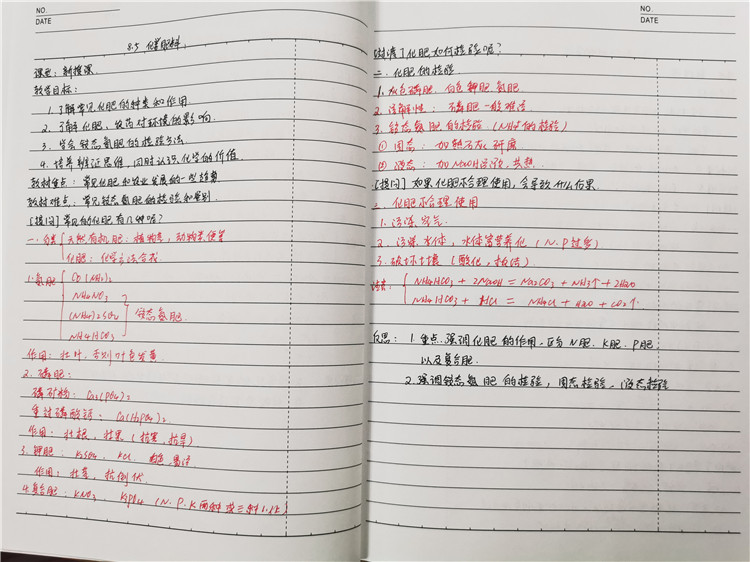 NO.
DATE
8.5 化学肥料
课型：新授课
教学目标：
1. 了解常见化肥的种类和作用.
2. 了解化肥、农药对环境的影响.
3. 学会铵态氮肥的检验方法
4. 培养辨证思维，同时认识化学的价值.
教材重点：常见化肥和农业发展的
教材难点：常见铵态氮肥的检验和鉴别.
[提问] 常见的化肥有几种呢？
一. 分类 天然有机肥：植物秸，动物粪便等
化肥：化学方法合成
1. 氮肥 CO(NH2)2
NH4NO3
(NH4)2SO4 铵态氮肥
NH4HCO3
作用：壮叶，否则叶色发黄
2. 磷肥：
磷矿粉：Ca3(PO4)2
重过磷酸钙：Ca(H2PO4)2
作用：壮根，壮果（抗寒，抗旱）
3. 钾肥：K2SO4 KCl
作用：壮茎，抗倒伏
4. 复合肥：KNO3 (N.P.K两种或三种以上)
NO.
DATE
[过渡] 化肥如何检验呢？
二. 化肥的检验
1. 灰色磷肥 白色钾肥.氮肥
2. 溶解性：磷肥一般难溶
3. 铵态氮肥的检验.（NH4+的检验）
① 固态：加熟石灰研磨
② 液态：加NaOH溶液，共热
[提问] 如果化肥不合理使用，会导致什么后果
化肥不合理使用
1. 污染空气
2. 污染水体，水体富营养化（N.P过多）
3. 破坏土壤（酸化，板结）
NH4HCO3 + 2NaOH = Na2CO3 + NH3↑ + 2H2O
NH4HCO3 + HCl = NH4Cl + H2O + CO2↑
反思：1. 重点强调化肥的作用，区分N肥.K肥.P肥
以及复合肥.
2. 强调铵态氮肥的检验，固态检验，液态检验